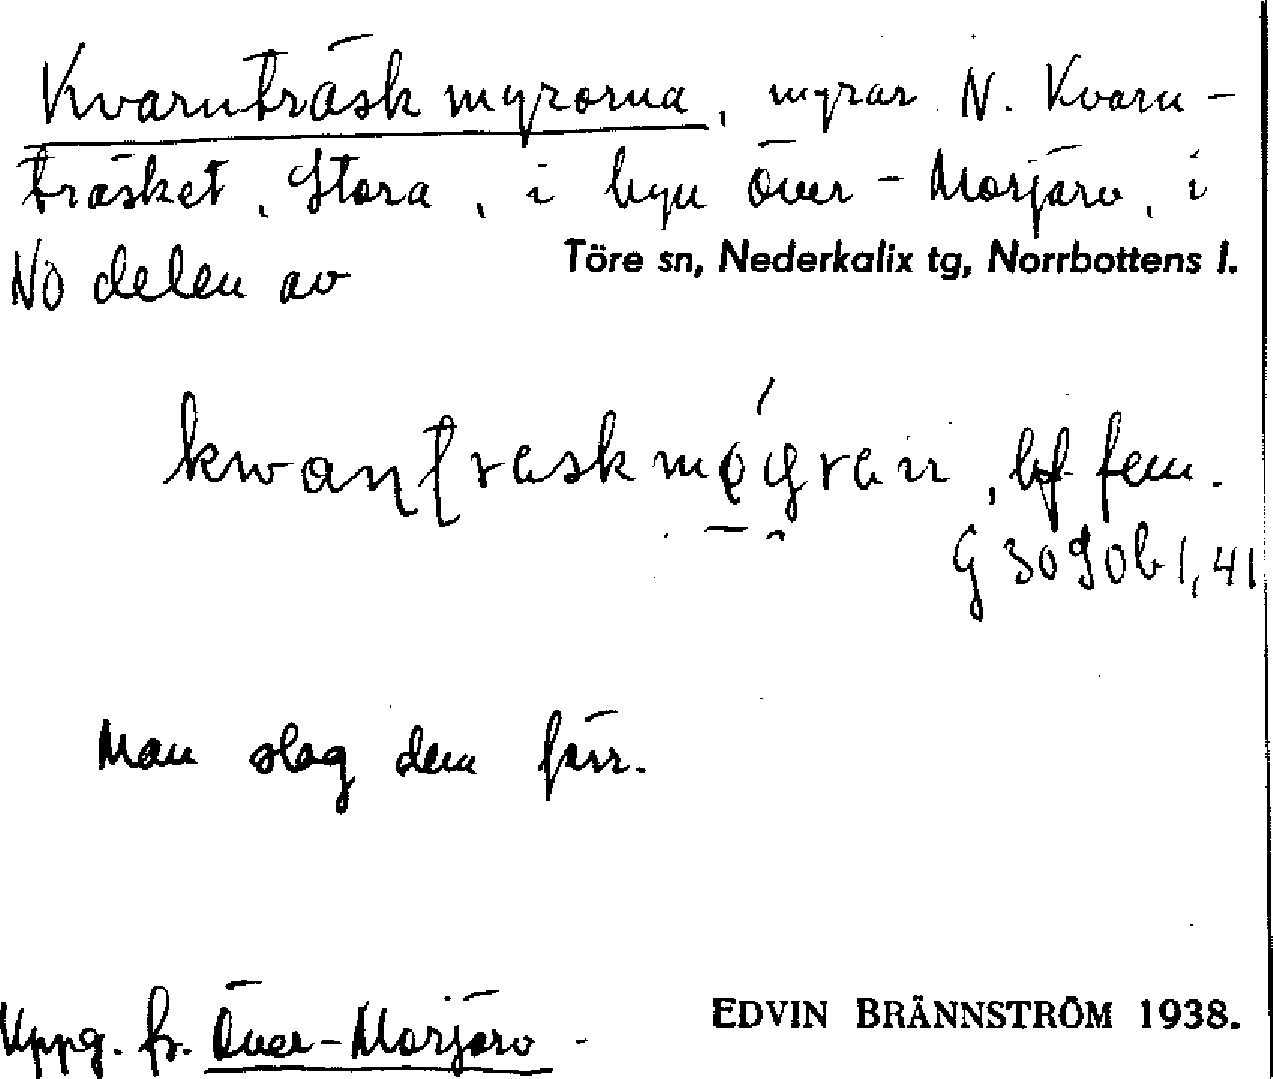 Kvarnträskmyrorna, myrar N. Kvarn-
träsket, Stora, i byn Över-Morjärv, i
NÖ delen av Töre sn, Nederkalix tg, Norrbottens l.
bf fem.
G 3090b 1,41
Man slog dem förr.
Uppg. fr. Över-Morjärv.
EDVIN BRÄNNSTRÖM 1938.